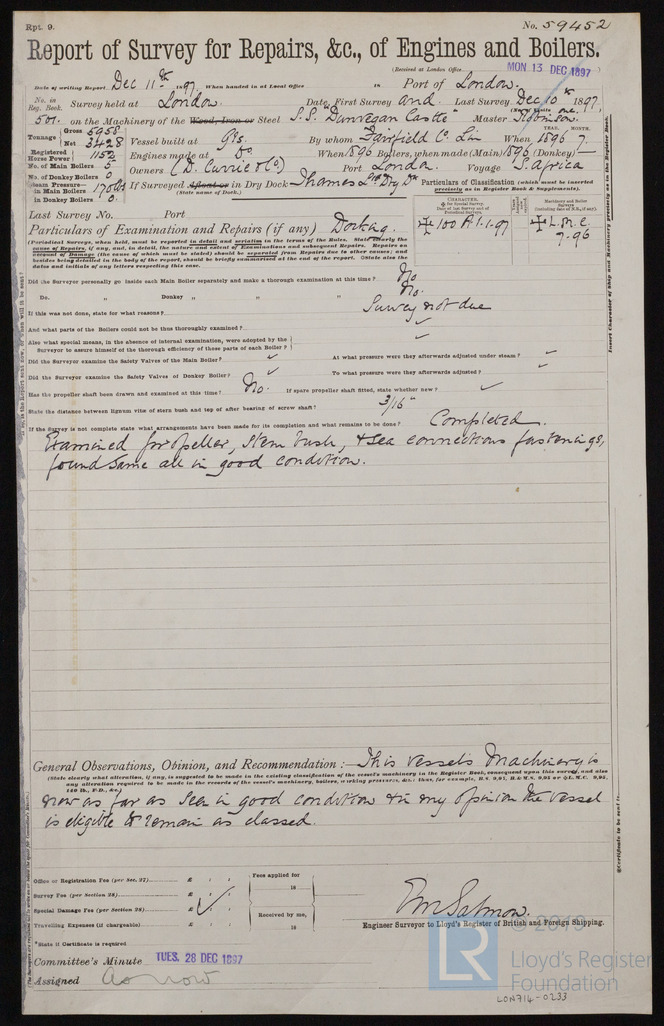 Rpt. 9.
No. 59452
Report of Survey for Repairs, &c., of Engines and Boilers.
(Received at London Office MON 13 DEC 1897
Date of writing Report Dec 11th 1897. When handed in at Local Office in Port of London.
No. in Reg. Book. Survey held at London. Date, First Survey and Last Survey Dec 10th 1897.
501. on the Machinery of the Wood, Iron or Steel S.S. "Dunvegan Castle" Master Robinson.
Tonnage Gross 5958 Net 3428
Vessel built at Gls. By whom Fairfield Co. Lim When 1896 7.
YEAR. MONTH.
Registered Horse Power 1152 Engines made at Do When 1896 Boilers, when made (Main) 1896 (Donkey)
No. of Main Boilers 5 Owners (D. Currie & Co) Port London. Voyage S. Africa
No. of Donkey Boilers 0
Steam Pressure— in Main Boilers 170 lbs If Surveyed Afloat or in Dry Dock Thames Dry Dk
(State name of Dock.)
in Donkey Boilers 0.
Particulars of Classification (which must be inserted precisely as in Register Book & Supplements).
Last Survey No. Port
100 A1. 1-97
L.M.C. 7-96
Particulars of Examination and Repairs (if any) Docking.
(Periodical Surveys, when held, must be reported in detail and seriatim in the terms of the Rules. State clearly the
cause of Repairs, if any, and, in detail, the nature and extent of Examinations and subsequent Repairs. Repairs on
account of Damage (the cause of which must be stated) should be separated from Repairs due to other causes; and
besides being detailed in the body of the report, should be briefly summarised at the end of the report. State also the
dates and initials of any letters respecting this case.
Did the Surveyor personally go inside each Main Boiler separately and make a thorough examination at this time? No
Do. „ Donkey „ „ „ „ No.
If this was not done, state for what reasons? Survey not due
And what parts of the Boilers could not be thus thoroughly examined?
Also what special means, in the absence of internal examination, were adopted by the
Surveyor to assure himself of the thorough efficiency of these parts of each Boiler?
Did the Surveyor examine the Safety Valves of the Main Boiler? At what pressure were they afterwards adjusted under steam?
Did the Surveyor examine the Safety Valves of Donkey Boiler? To what pressure were they afterwards adjusted?
Has the propeller shaft been drawn and examined at this time? No. If spare propeller shaft fitted, state whether new?
State the distance between lignum vitæ of stern bush and top of after bearing of screw shaft? 3/16"
If the Survey is not complete state what arrangements have been made for its completion and what remains to be done? Completed.
Examined propeller, stern bush, & sea connections fastenings,
found same all in good condition.
General Observations, Opinion, and Recommendation:— This vessels Machinery is
(State clearly what alteration, if any, is suggested to be made in the existing classification of the vessel's machinery in the Register Book, consequent upon this survey, and also
any alteration required to be made in the records of the vessel's machinery, boilers, working pressures, &c.
now as far as seen in good condition & in my opinion the vessel
is eligible to remain as classed.
Office or Registration Fee (per Sec. 27) £ Fees applied for
Survey Fee (per Section 28) £ 18
Special Damage Fee (per Section 28) £ Received by me,
Travelling Expenses (if chargeable) £ 18
E M Salmon.
Engineer Surveyor to Lloyd's Register of British and Foreign Shipping.
*State if Certificate is required
Committee's Minute TUES. 28 DEC 1897
Assigned as now
© 2019
LR
Lloyd's Register
Foundation
LON714-0233